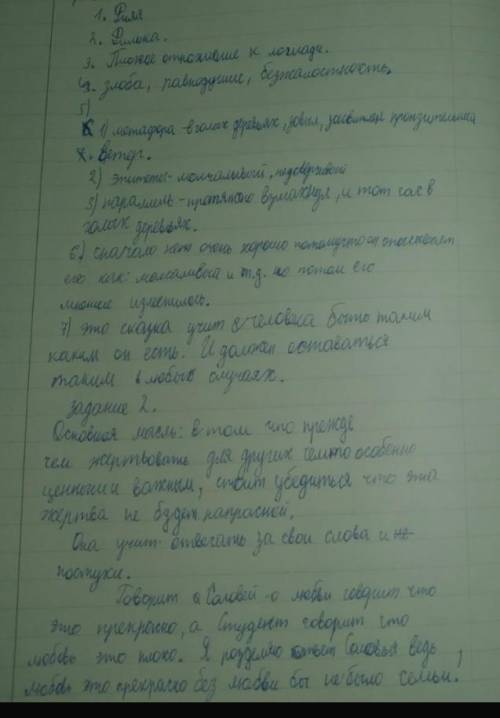 1. Филя
2. Филька.
3. Плохое отношение к лошади.
4. злоба, равнодушие, безжалостность
5)
6 1) метафора - в голых деревьях, завыл, засвистел пронзительный
ветер.
2) эпитеты - молчаливый, недоверчивый
3) параллель - протяжно взмахнул, и тот час в
голых деревьях.
6.) сначало не очень хорошо потомучто он
его как: молчаливый и т.д. но потом его
мнение изменилось.
7) это сказка учит человека быть таким
каким он есть. И должен оставаться
таким в любых случаях.
задание 2.
Основная мысль: в том что прежде
чем жертвовать для других чемто особенно
ценным и важным, стоит убедиться что эта
жертва не будет напрасной.
Она учит отвечать за свои слова и
поступки.
Говорит Соловей о любви говорит что
это прекрасно, а Студент говорит что
любовь это плохо. Я разделяю ответ Соловья ведь
любовь это прекрасно без любви бы не было семьи!